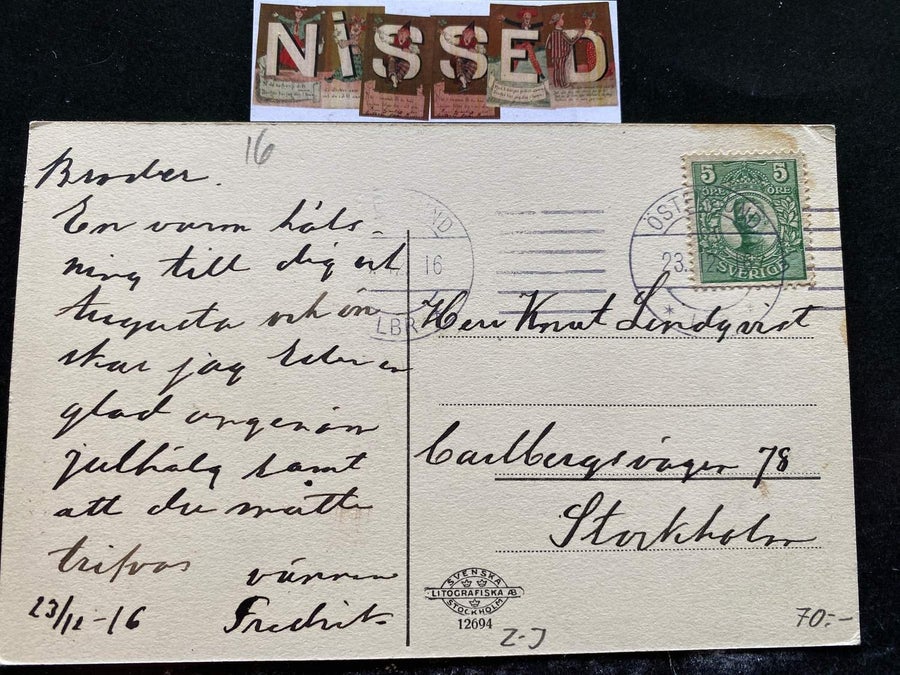 NISSED
16
Broder.
En varm häls-
ning till dig och
Augusta och ön
skar jag Eder en
glad angenäm
julhälg samt
att du måtte
trifvas vännen
23/12-16 Fredrik
16
LBR
ÖST ND
23.
5 5
ÖRE ÖRE
SVERIGE
Herr Knut Lindqvist
Carlbergsvägen 78
Stockholm
SVENSKA
LITOGRAFISKA AB
STOCKHOLM
12694
Z-J
70:-